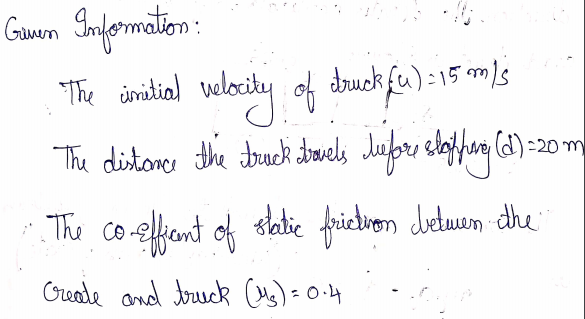 Given Information:
The initial velocity of truck (u) = 15 m/s
The distance the truck travels before stopping (d) = 20 m
The co-efficient of static friction between the
Create and truck (μs) = 0.4